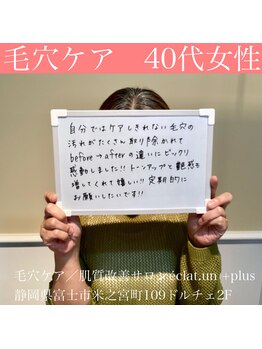 毛穴ケア　40代女性
自分ではケアしきれない毛穴の
汚れがたくさん取り除かれて
before→afterの違いにビックリ
感動しました!!トーンアップと艶感も
増してくれて嬉しい!!定期的に
お願いしたいです!!
毛穴ケア／肌質改善サロンéclat.un＋plus
静岡県富士市米之宮町109ドルチェ2F